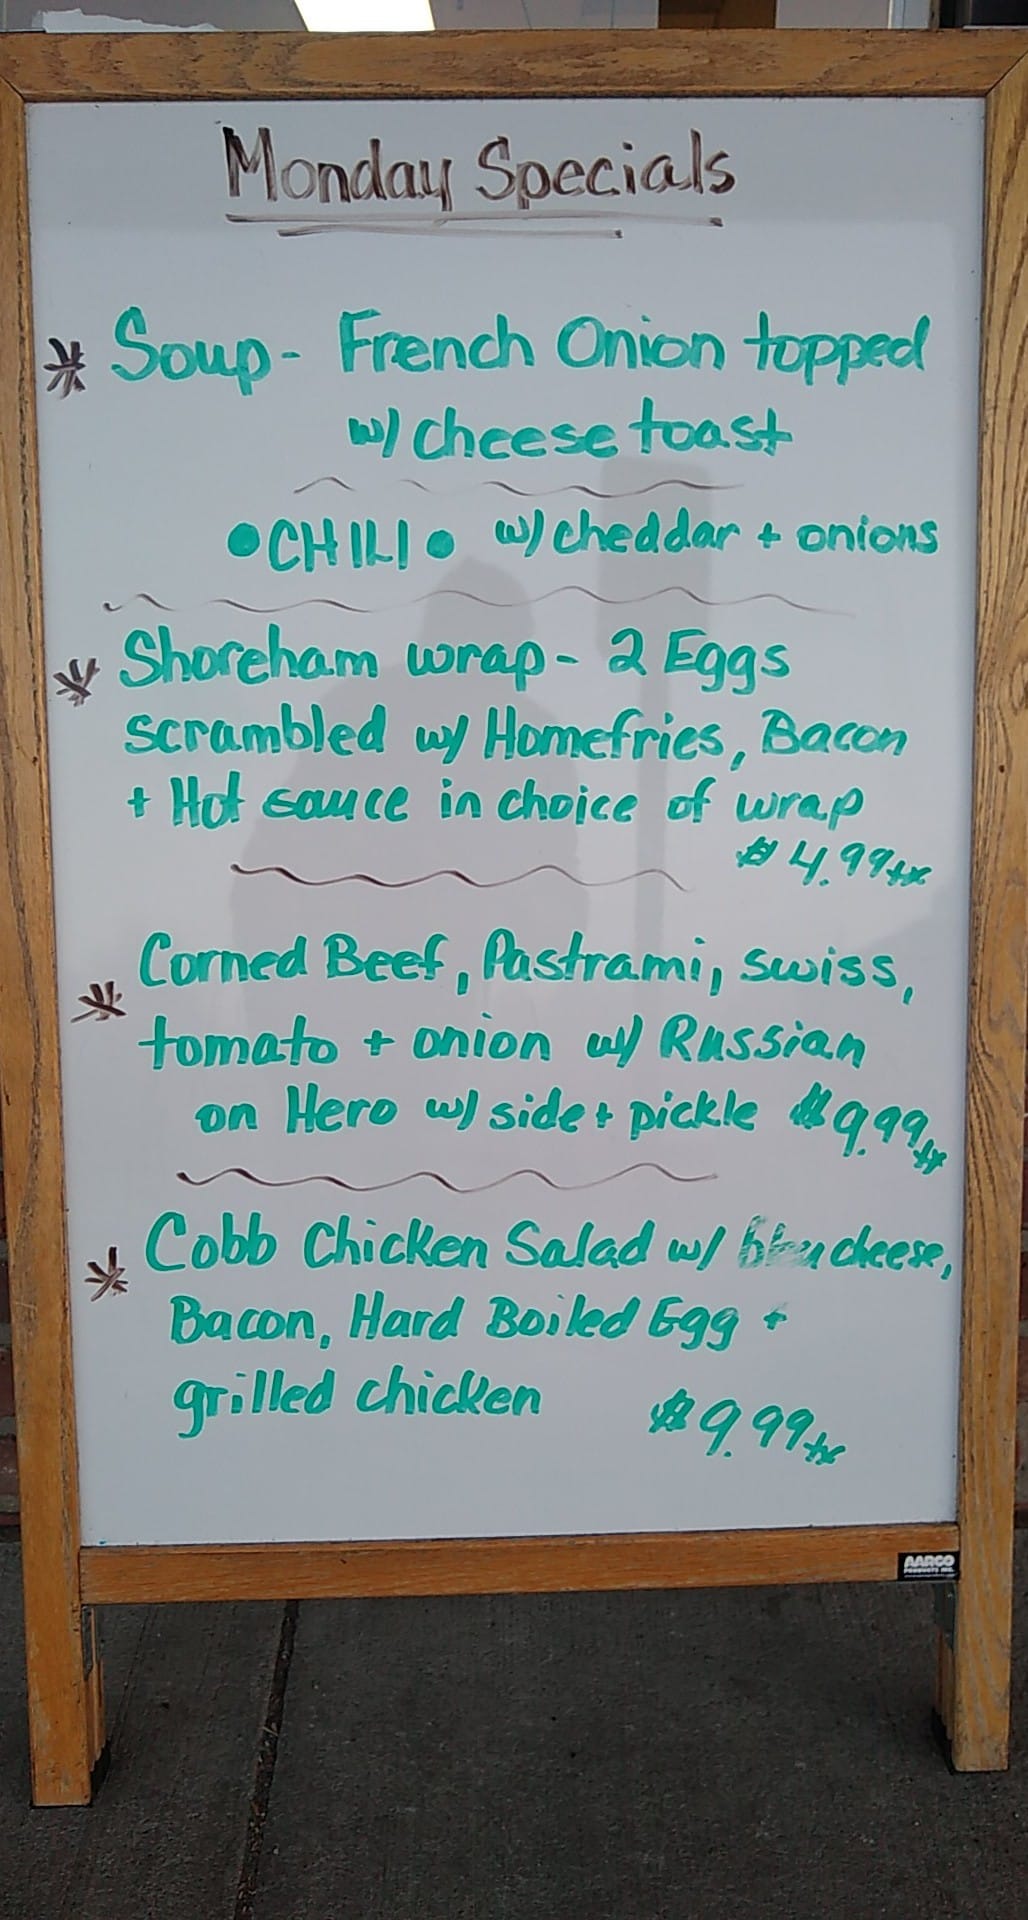 Monday Specials
* Soup- French Onion topped
w/ cheese toast
•CHILI• w/ cheddar + onions
* Shoreham wrap- 2 Eggs
scrambled w/ Homefries, Bacon
+ Hot sauce in choice of wrap
$4.99+tx
* Corned Beef, Pastrami, swiss,
tomato + onion w/ Russian
on Hero w/ side + pickle $9.99+tx
* Cobb Chicken Salad w/ bleu cheese,
Bacon, Hard Boiled Egg +
grilled chicken $9.99+tx
AARCO
PRODUCTS INC.